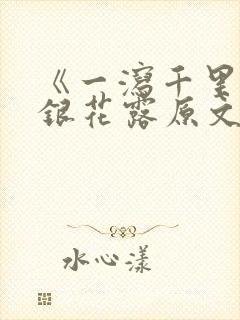 《一泻千里
银花露原文
水心漾